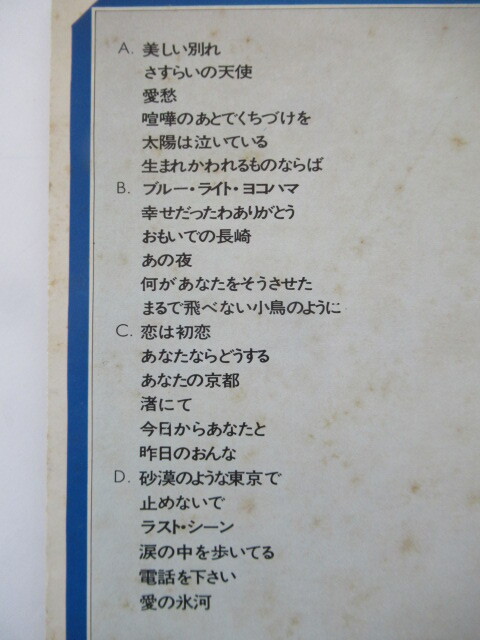 A. 美しい別れ
さすらいの天使
愛愁
喧嘩のあとでくちづけを
太陽は泣いている
生まれかわれるものならば
B. ブルー・ライト・ヨコハマ
幸せだったわありがとう
おもいでの長崎
あの夜
何があなたをそうさせた
まるで飛べない小鳥のように
C. 恋は初恋
あなたならどうする
あなたの京都
渚にて
今日からあなたと
昨日のおんな
D. 砂漠のような東京で
止めないで
ラスト・シーン
涙の中を歩いてる
電話を下さい
愛の氷河